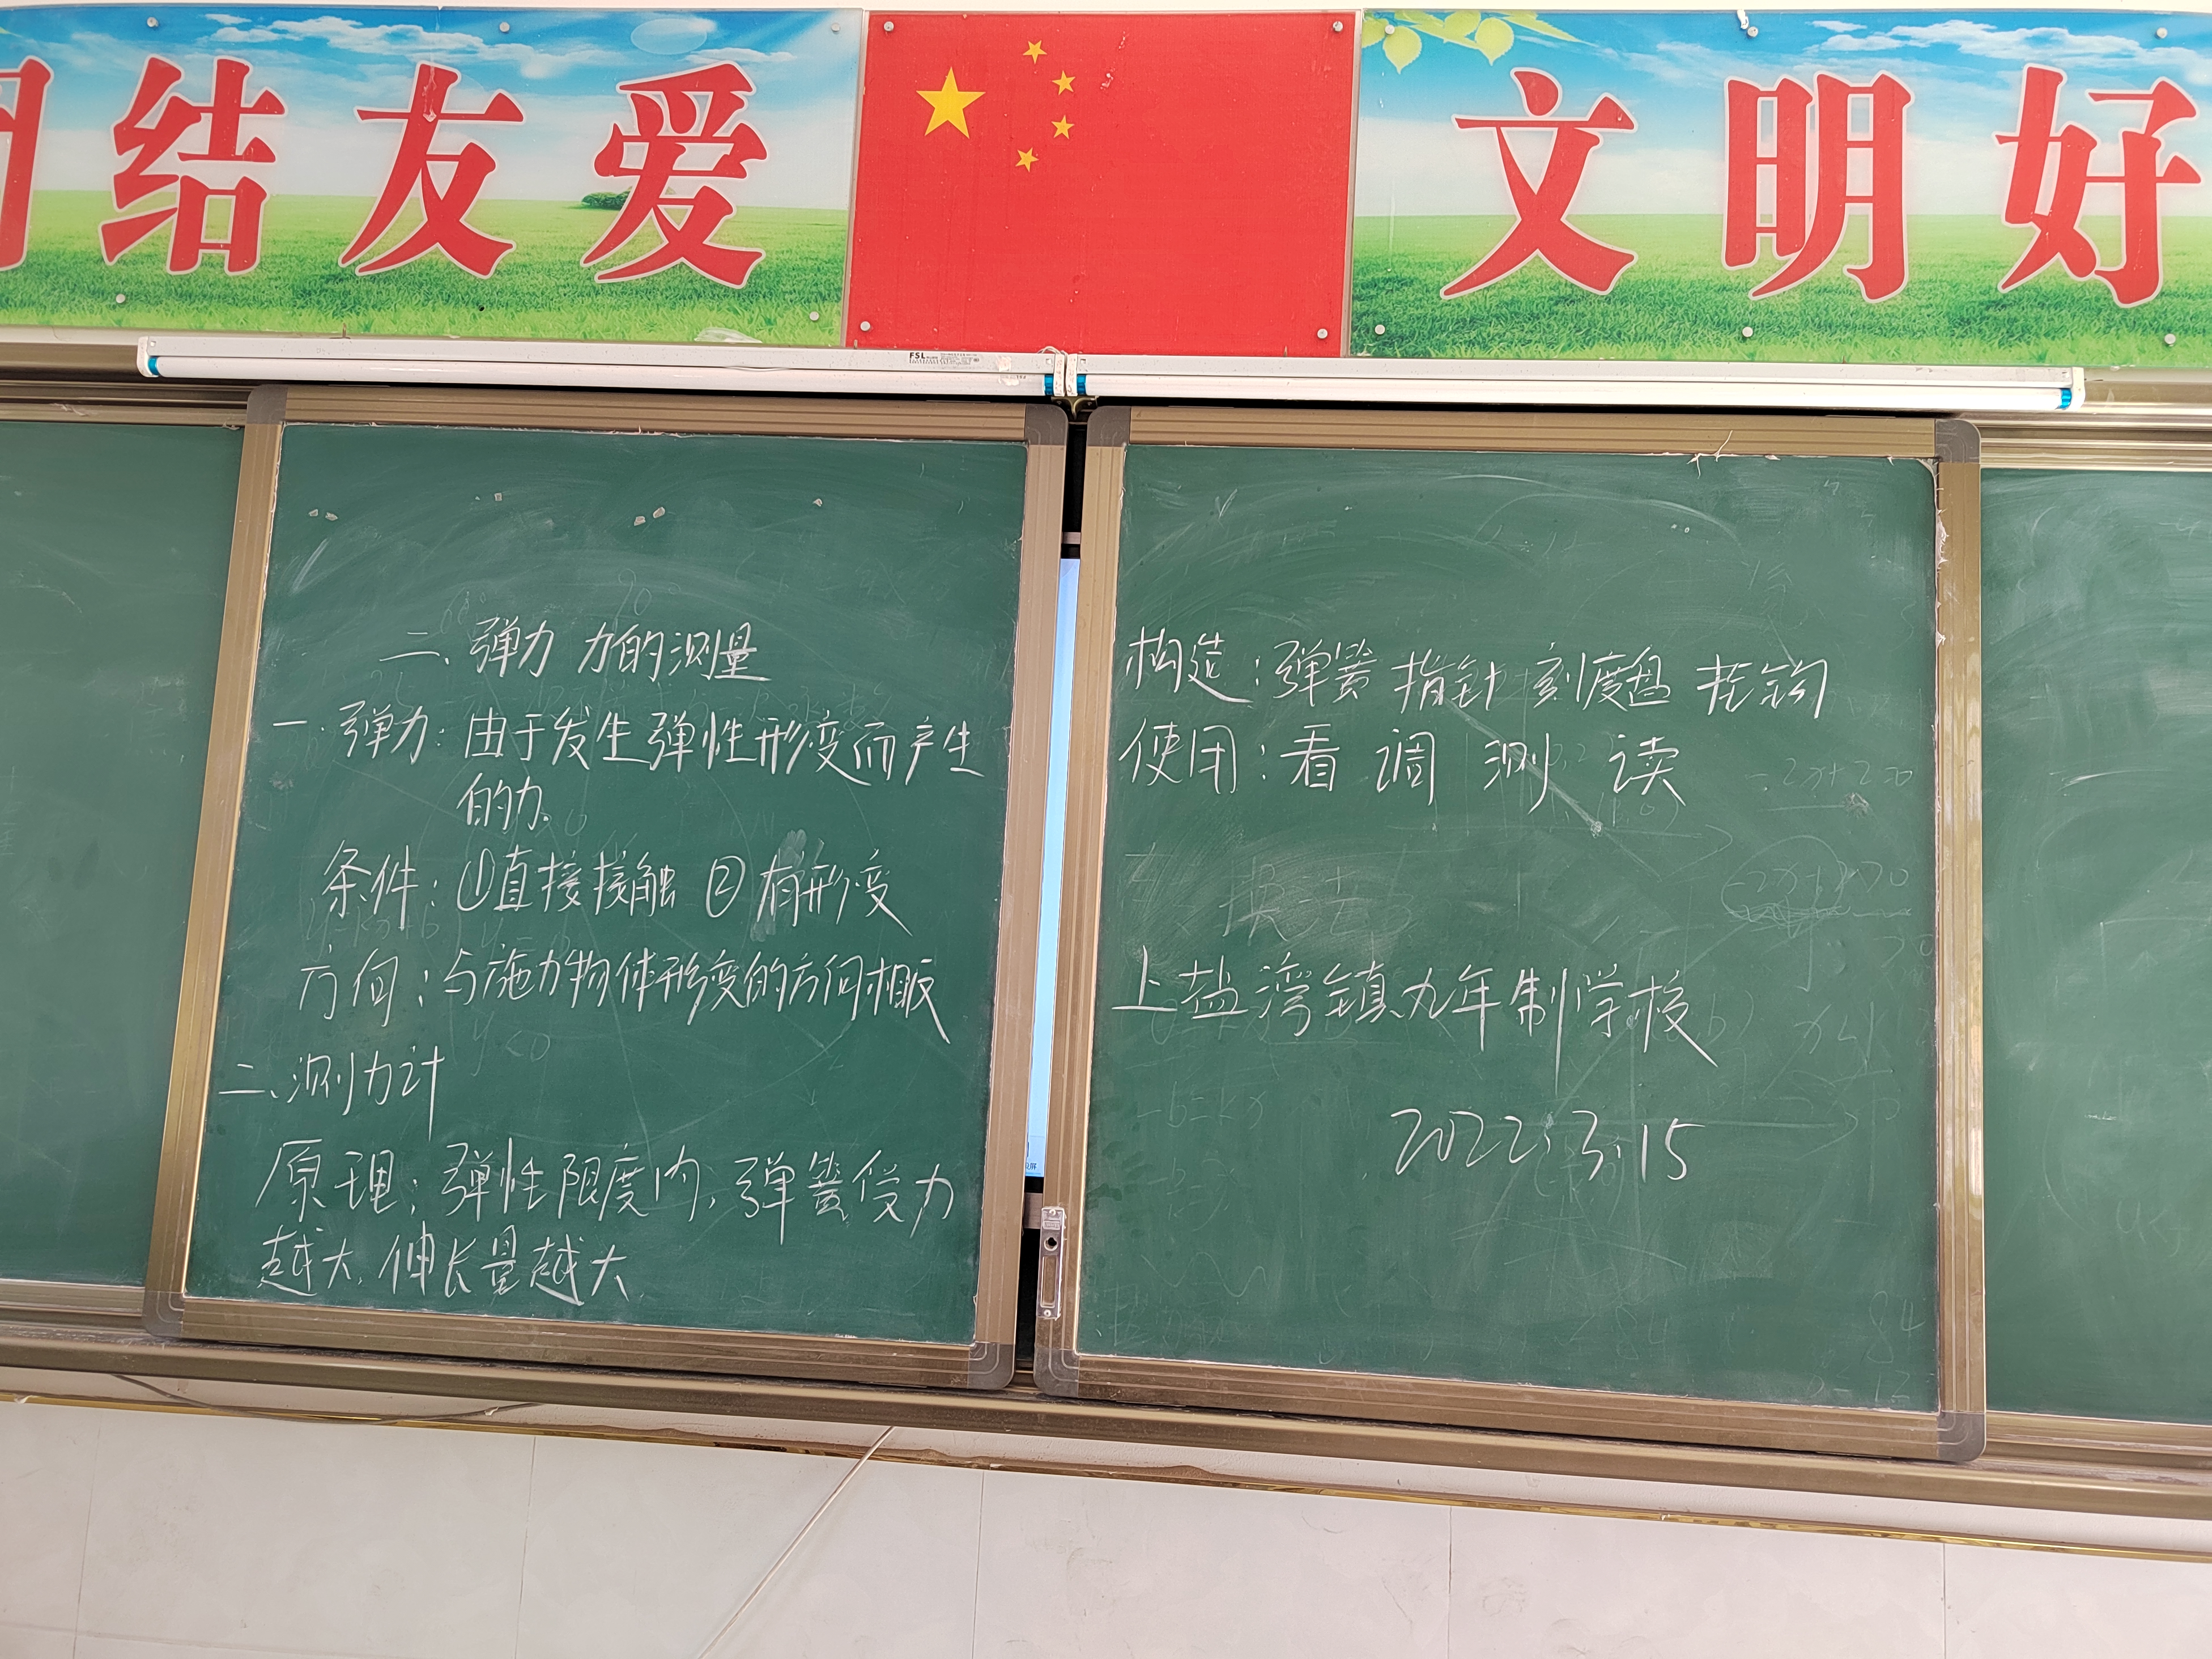 结友爱
文明好
FSL
二、弹力 力的测量
一.弹力:由于发生弹性形变而产生
的力。
条件:①直接接触 ②有形变
方向:与施力物体形变的方向相反
二、测力计
原理:弹性限度内,弹簧受力
越大,伸长量越大
构造:弹簧 指针 刻度盘 挂钩
使用:看 调 测 读
上盐湾镇九年制学校
2022.3.15